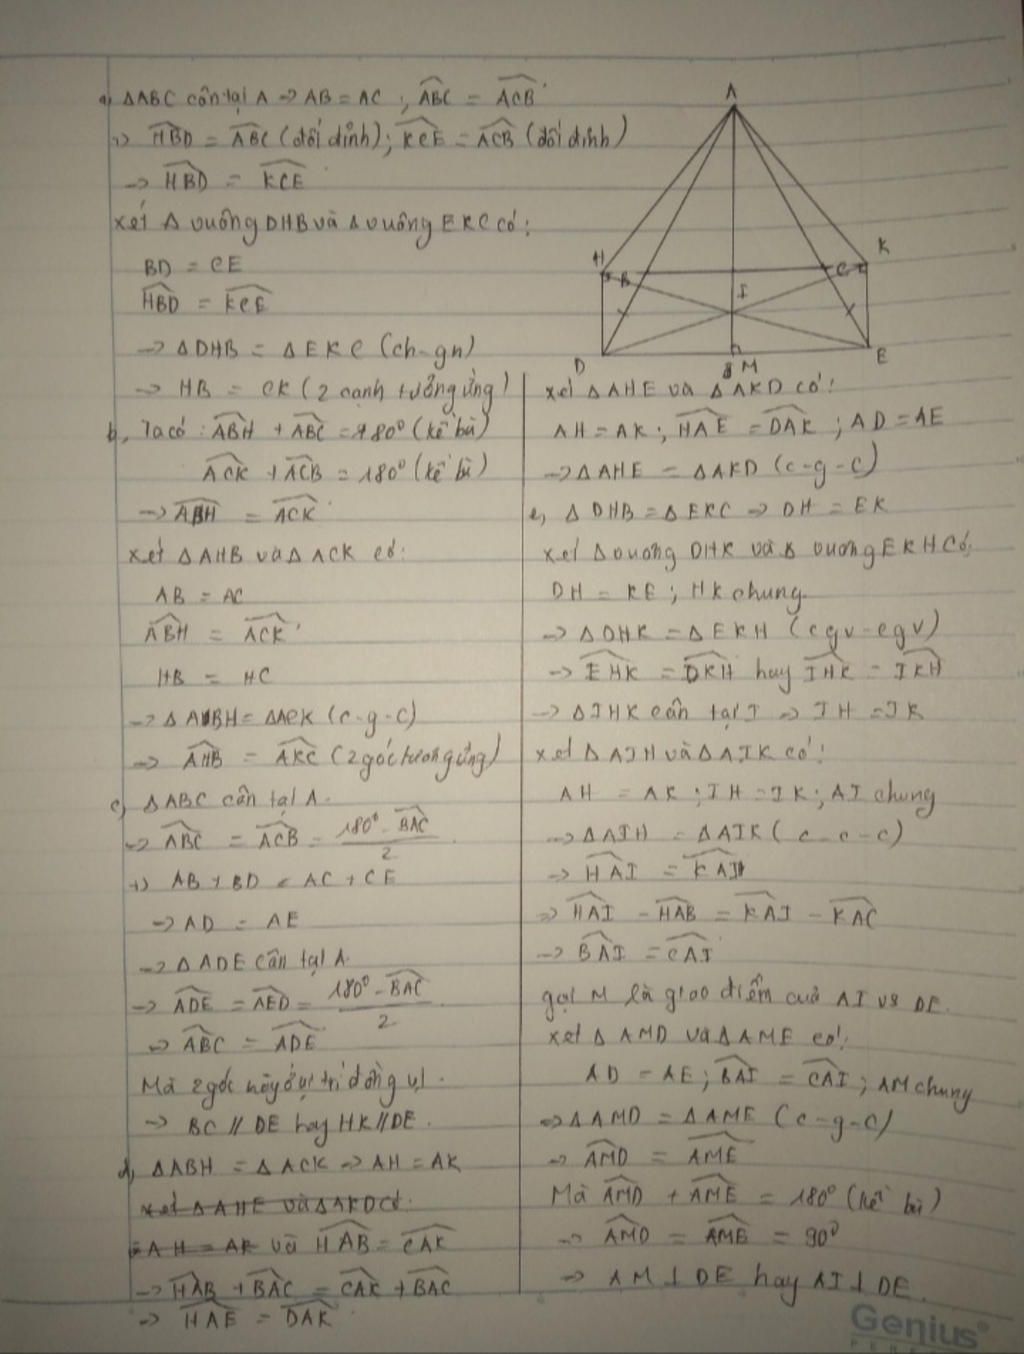 a, ΔABC cân tại A -> AB = AC ; \widehat{ABC} = \widehat{ACB}
-> \widehat{HBD} = \widehat{ABC} (đối đỉnh); \widehat{KCE} = \widehat{ACB} (đối đỉnh)
-> \widehat{HBD} = \widehat{KCE}
xét Δ vuông DHB và Δ vuông EKC có:
BD = CE
\widehat{HBD} = \widehat{KCE}
-> ΔDHB = ΔEKC (ch-gn)
-> HB = CK (2 cạnh tưởng ứng)
b, Ta có: \widehat{ABH} + \widehat{ABC} = 180° (kề bù)
\widehat{ACK} + \widehat{ACB} = 180° (kề bù)
-> \widehat{ABH} = \widehat{ACK}
xét ΔAHB và ΔACK có:
AB = AC
\widehat{ABH} = \widehat{ACK}
HB = HC
-> ΔABH = ΔACK (c-g-c)
-> \widehat{AHB} = \widehat{AKC} (2 góc tương ứng)
c, ΔABC cân tại A.
-> \widehat{ABC} = \widehat{ACB} = \frac{180° - \widehat{BAC}}{2}
+) AB + BD = AC + CE
-> AD = AE
-> ΔADE cân tại A.
-> \widehat{ADE} = \widehat{AED} = \frac{180° - \widehat{BAC}}{2}
-> \widehat{ABC} = \widehat{ADE}
Mà 2 góc này ở vị trí đồng vị.
-> BC // DE hay HK // DE.
d, ΔABH = ΔACK -> AH = AK
xét ΔAHE và ΔAKD có:
AH = AK và \widehat{HAB} = \widehat{CAK}
-> \widehat{HAB} + \widehat{BAC} = \widehat{CAK} + \widehat{BAC}
-> \widehat{HAE} = \widehat{DAK}
A
H
B
C
K
I
D
M
E
xét ΔAHE và ΔAKD có:
AH = AK ; \widehat{HAE} = \widehat{DAK} ; AD = AE
-> ΔAHE = ΔAKD (c-g-c)
e, ΔDHB = ΔEKC -> DH = EK
xét Δ vuông DHK và Δ vuông EKH Có:
DH = KE ; HK chung.
-> ΔDHK = ΔEKH (cgv-cgv)
-> \widehat{EHK} = \widehat{DKH} hay \widehat{IHK} = \widehat{IKH}
-> ΔIHK cân tại I -> IH = IK
xét ΔAIH và ΔAIK có:
AH = AK ; IH = IK ; AI chung
-> ΔAIH = ΔAIK (c-c-c)
-> \widehat{HAI} = \widehat{KAI}
-> \widehat{HAI} - \widehat{HAB} = \widehat{KAI} - \widehat{KAC}
-> \widehat{BAI} = \widehat{CAI}
gọi M là giao điểm của AI và DE.
xét ΔAMD và ΔAME có:
AD = AE ; \widehat{BAI} = \widehat{CAI} ; AM chung
-> ΔAMD = ΔAME (c-g-c)
-> \widehat{AMD} = \widehat{AME}
Mà \widehat{AMD} + \widehat{AME} = 180° (kề bù)
-> \widehat{AMD} = \widehat{AME} = 90°
-> AM ⊥ DE hay AI ⊥ DE.
Genius